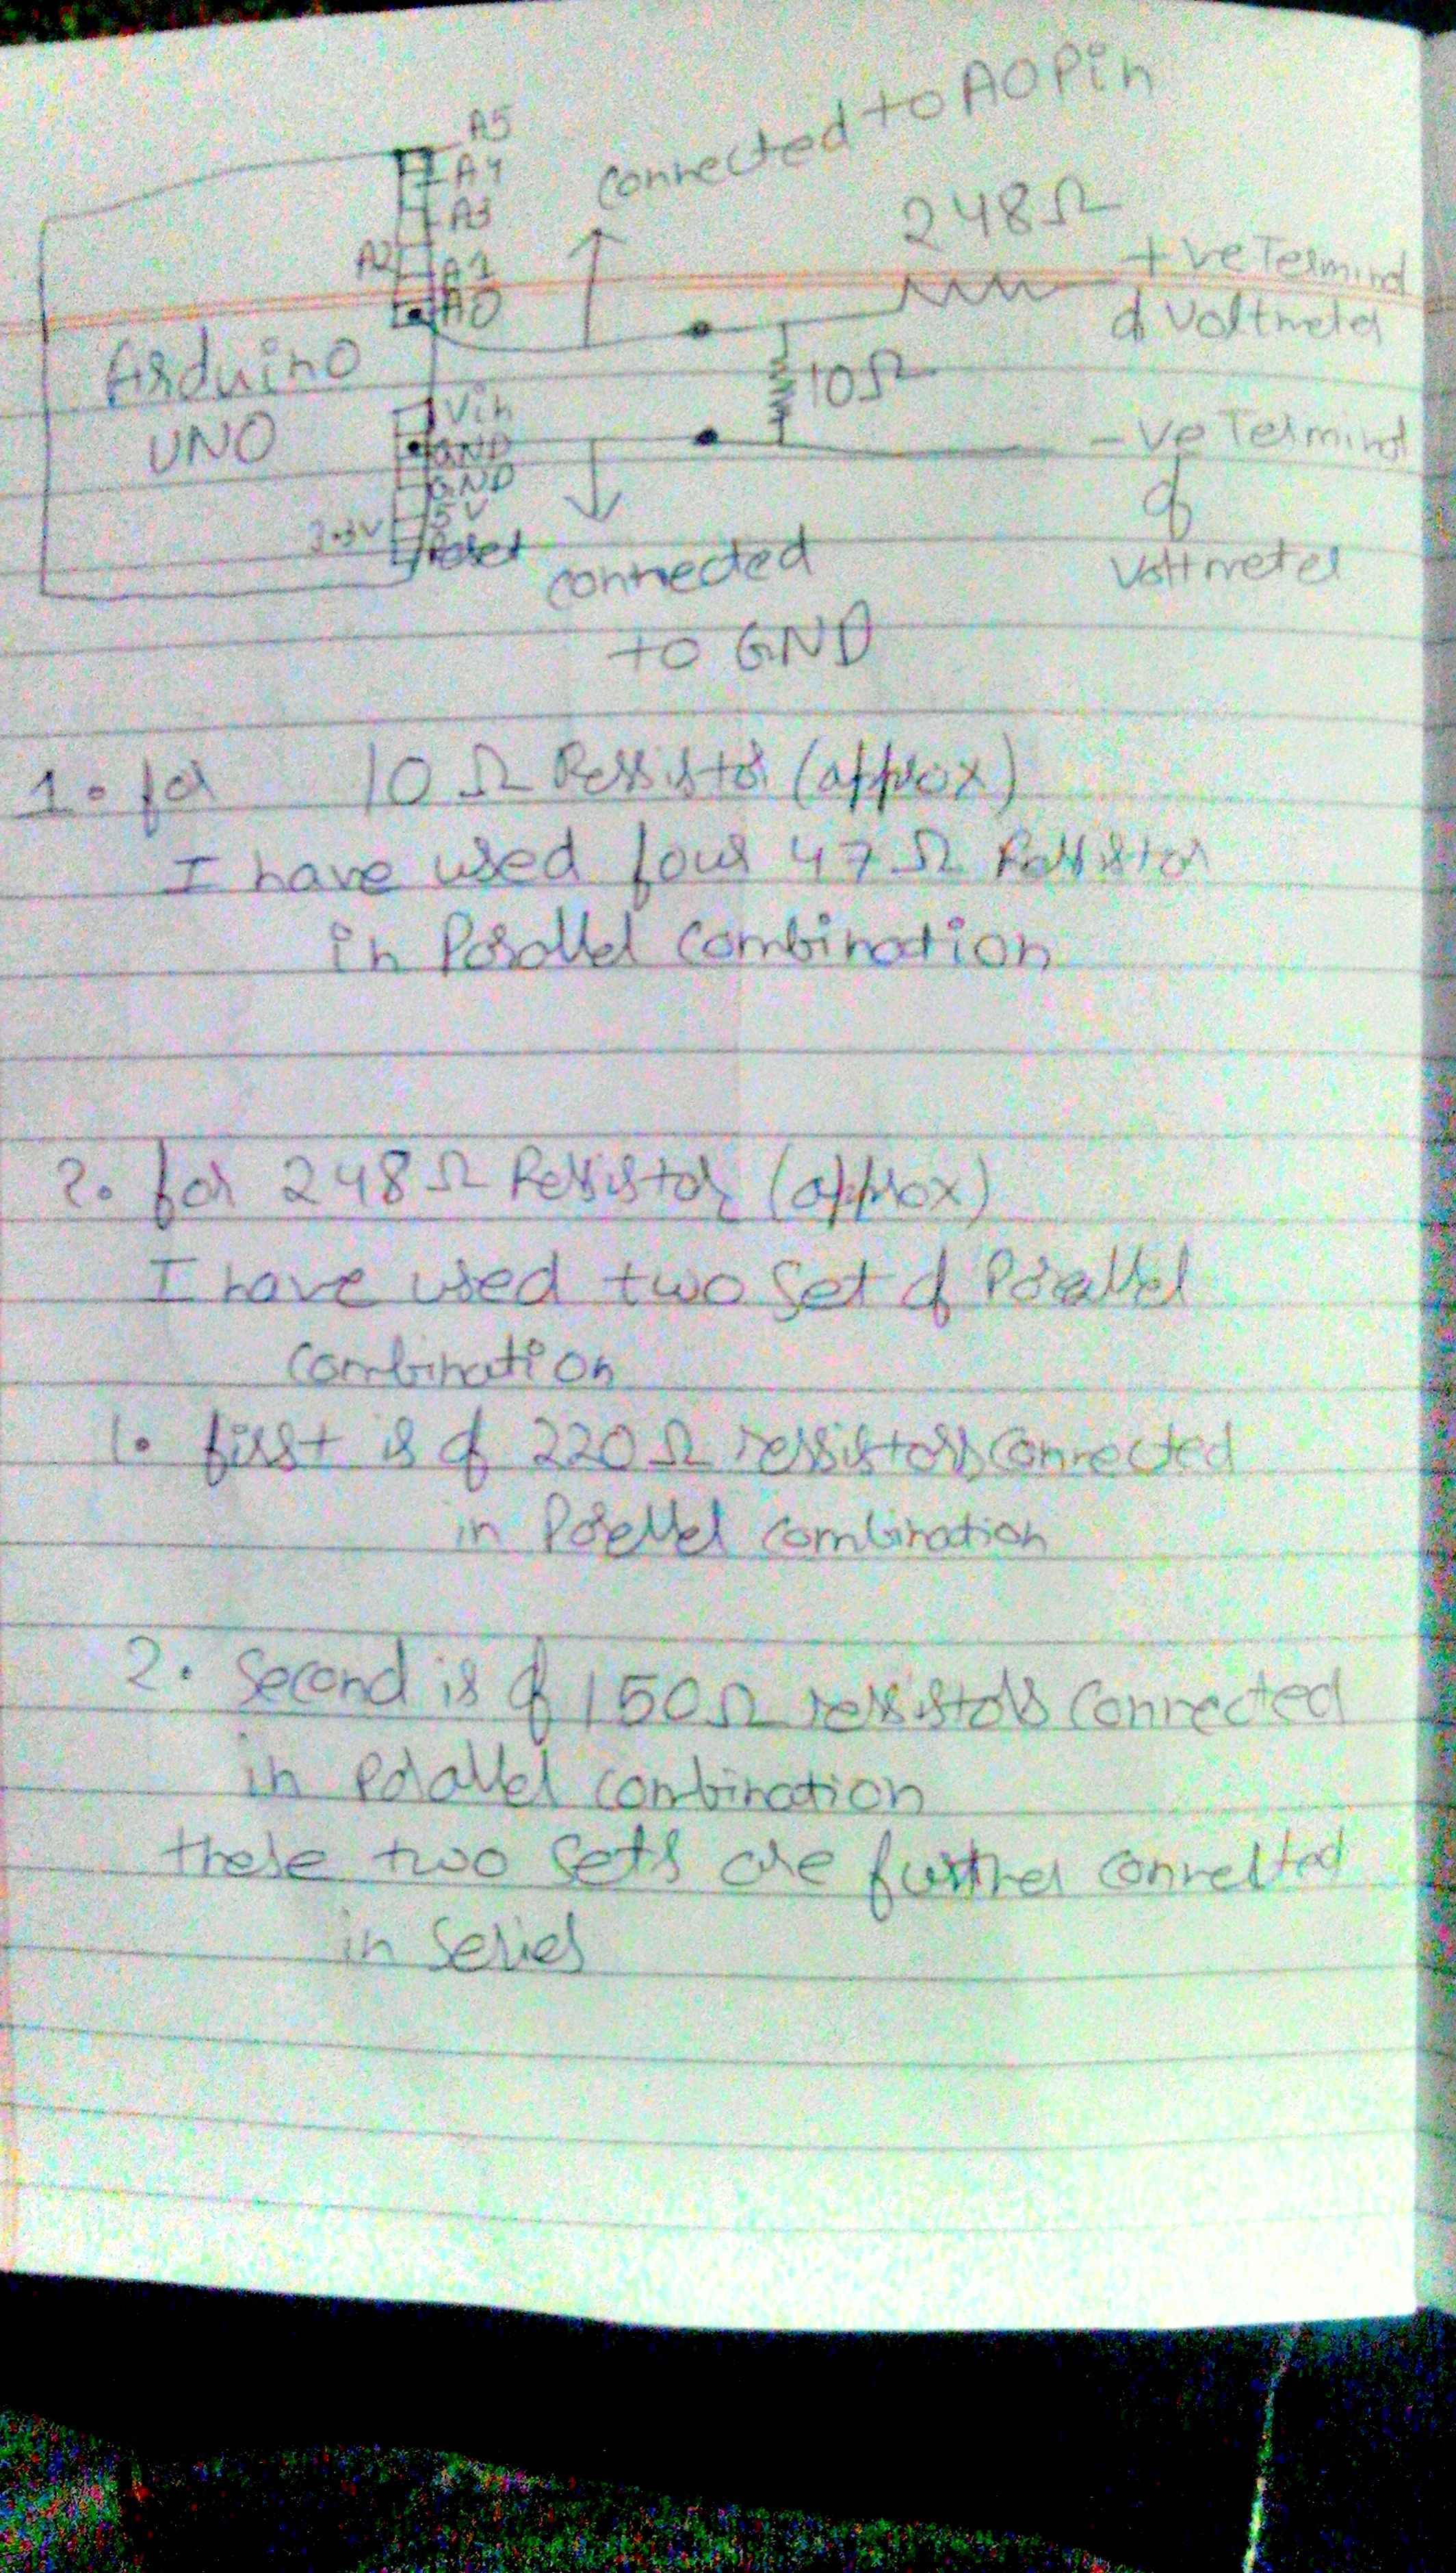 A5
connected to A0 Pin
A4
A3
248Ω
A2 A1
A0
+ve Terminal
of Voltmeter
Arduino
UNO
10Ω
Vin
GND
GND
5V
3.3V
Reset
-ve Terminal
of
Voltmeter
connected
to GND
1. for 10Ω Resistor (approx)
I have used four 47Ω Resistor
in Parallel combination
2. for 248Ω Resistor (approx)
I have used two set of Parallel
combination
1. first is of 220Ω ressistors connected
in Parellel combination
2. Second is of 150Ω resistors connected
in parallel combination
these two sets are further connected
in series